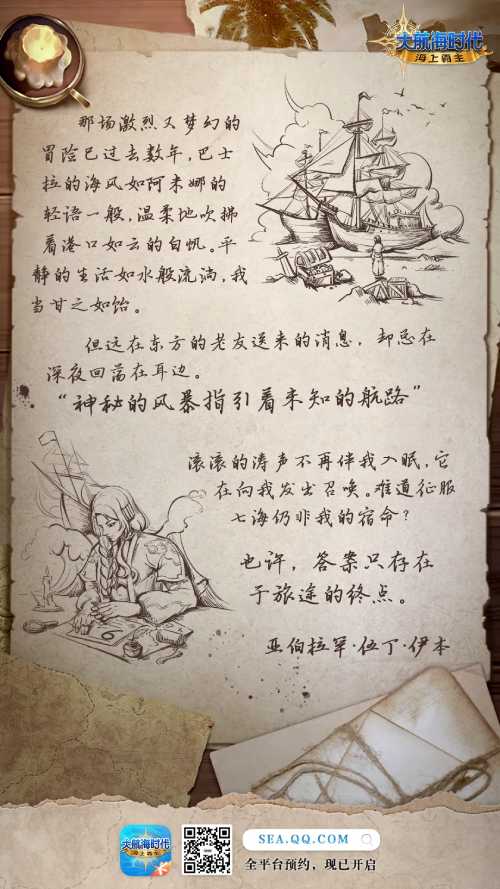 大航海时代
海上霸主
那场激烈又梦幻的
冒险已过去数年,巴士
拉的海风如阿米娜的
轻语一般,温柔地吹拂
着港口如云的白帆。平
静的生活如水般流淌,我
当甘之如饴。
但远在东方的老友送来的消息,却总在
深夜回荡在耳边。
“神秘的风暴指引着未知的航路”
滚滚的涛声不再伴我入眠,它
在向我发出召唤。难道征服
七海仍非我的宿命?
也许,答案只存在
于旅途的终点。
亚伯拉罕·伍丁·伊本
大航海时代
海上霸主
SEA.QQ.COM
全平台预约,现已开启